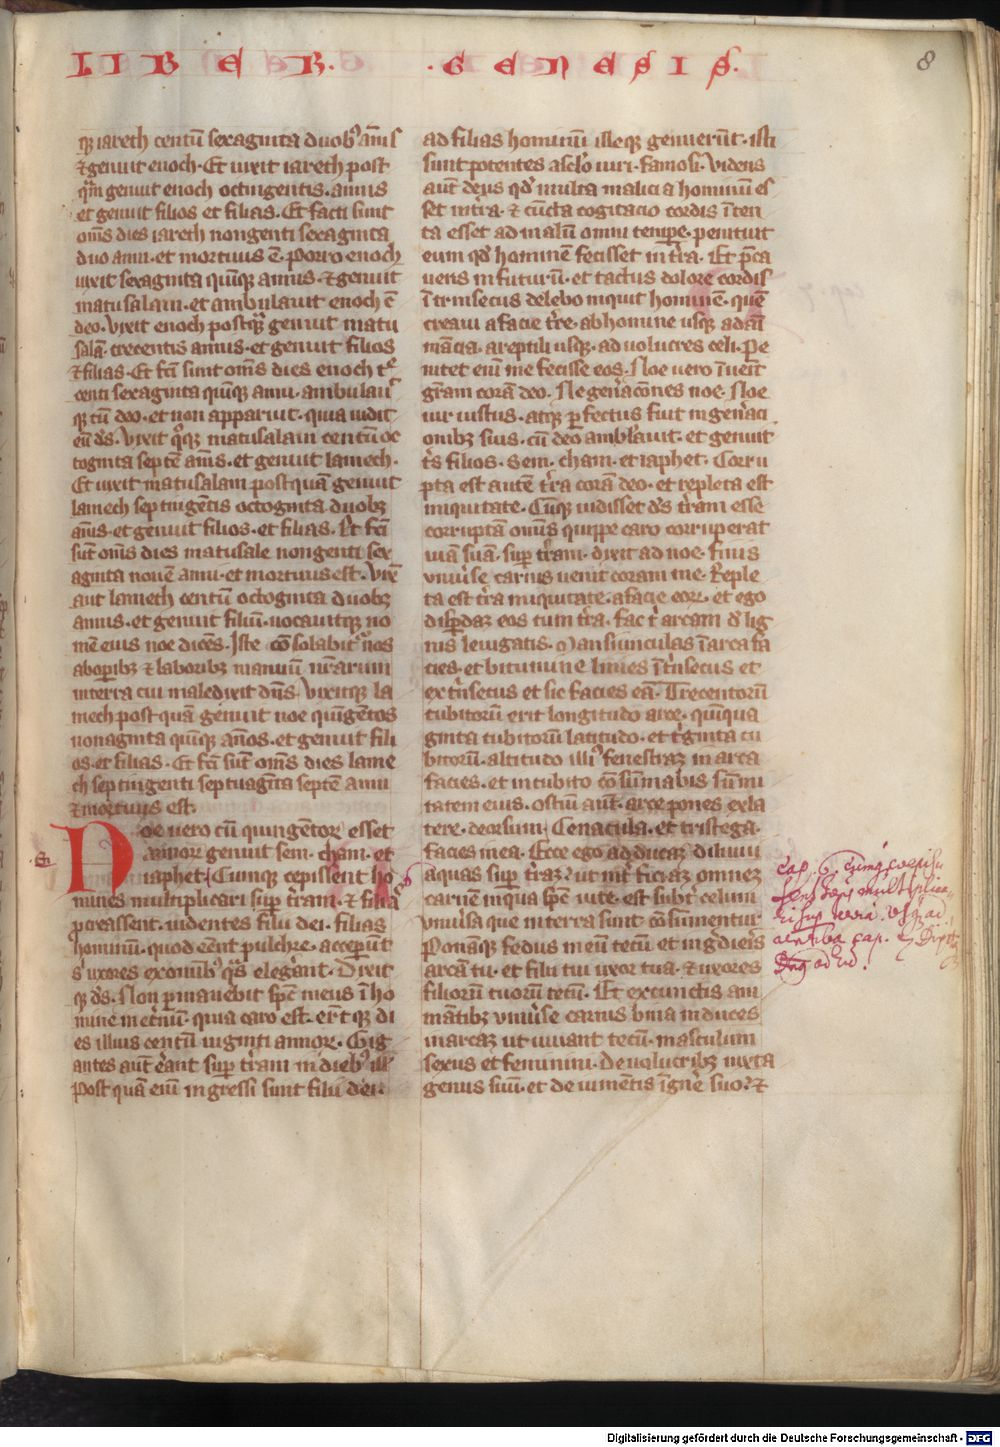 LIBER. .GENESIS.
8
qꝫ iareth centū sexaginta duobꝰ ānis
⁊ genuit enoch. Et uixit iareth post
qͣm genuit enoch octingentis. annis
et genuit filios et filias. Et facti sunt
om̄s dies iareth nongenti sexaginta
duo anni. et mortuus ē. Porro enoch
uixit sexaginta quinqꝫ annis. ⁊ genuit
matusalam. et ambulauit enoch cū
deo. Vixit enoch postqͣꝫ genuit matu
salā. trecentis annis. et genuit filios
⁊ filias. Et fc̄i sunt om̄s dies enoch tͬ
centi sexaginta quinqꝫ anni. ambulauitͬ
qꝫ cū deo. et non apparuit. quia tulit
eū dſ̄. Vixit qͦqꝫ matusalam centū oc
toginta septē annis. et genuit lamech.
Et uixit matusalam postquā genuit
lamech septingētis octoginta duobꝫ
annis. et genuit filios. et filias. Et fc̄i
sūt om̄s dies matusale nongenti sex
aginta nouē anni. et mortuus est. Vix̄
aut lamech centū octoginta duobꝫ
annis. et genuit filiū. uocauitqꝫ no
mē eius noe dicēs. Iste cōsolabitͬ nos
ab oꝑibꝫ ⁊ laboribꝫ manuū nr̄arum
in terra cui maledixit dn̄s. Vixitqꝫ la
mech post quā genuit noe quīgētos
nonaginta quinqꝫ años. et genuit fili
os. et filias. Et fc̄i sūt om̄s dies lame
ch septingenti septuagīta septē anni
⁊ mortuus est.
Noe uero cū quingētoꝝ esset
annoꝝ genuit sem. cham. et
iaphet. Cumqꝫ cepissent ho
mines multiplicari suꝑ tr̄am. ⁊ filias
ꝓcreassent. uidentes filii dei. filias
hominū. quod eēnt pulchre. acceꝑūt
sͥ uxores ex omnibꝰ qͣs elegerant. Dixit
qꝫ dſ̄. Non ꝑmanebit spc̄ meus ī ho
mine in et̄nū. quia caro est. erūtqꝫ di
es illius centū uiginti annoꝝ. Gig
antes aut̄ erant suꝑ tr̄am in diebꝰ ill̄
Post quā enī ingressi sunt filii dei.
ad filias hominū illeqꝫ genuerūt. isti
sunt potentes a sclo uiri. famosi. Videns
aut̄ deus qd̓ multa malicia hominū es
set in tr̄a. ⁊ cūcta cogitacio cordis īten
ta esset ad malū omni temꝑe. penituit
eum qd̓ hominē fecisset in tr̄a. Et pͬca
uens in futurū. et tactus dolore cordis
ītrinsecus delebo inquit hominē. quē
creaui a facie tr̄e. ab homine usqꝫ ad aī
māncia. a reptili usqꝫ. ad uolucres celi. Pe
nitet enī me fecisse eos. Noe uero īuenit
gr̄am corā deo. Ne gen̄acōnes noe. Noe
uir iustus. atqꝫ ꝑfectus fuit in gen̄aci
onibꝫ suis. cū deo amblauit. et genuit
tͬs filios. Sem. cham. et iaphet. Corru
pta est autē tr̄a corā deo. et repleta est
iniquitate. Cūqꝫ uidisset dſ̄ tr̄am esse
corruptā omnis quippe caro corruperat
uiā suā. suꝑ tr̄am. dixit ad noe. finis
vniūse carnis uenit coram me. Reple
ta est tr̄a iniquitate. a facie eoꝝ. et ego
disꝑdaꝫ eos cum tr̄a. fac tͥ arcam d̓ lig
nis leuigatis. Mansiunculas ī arca fa
cies. et bitumine linies ītͥnsecus et
extͥnsecus et sic facies eā. Trecentorū
cubitorū erit longitudo arce. quinqua
ginta cubitorū latitudo. et tͥginta cu
bitorū. altitudo illiꝰ fenestraꝫ in arca
facies. et in cubito cōsūmabis sūmi
tatem eius. ostiū aut̄. arce pones ex la
tere. deorsum. Cenacula. et tristega.
facies in ea. Ecce ego adducaꝫ diluuii
aquas suꝑ tr̄aꝫ. ut int̄ficiaꝫ omneꝫ
carnē in qua spc̄ uite. est subt̄ celum
vniūsa que in terra sunt cōsumentur
Ponāqꝫ fedus meū tecū et ingͬdieris
arcā tu. et filii tui uxor tua. ⁊ uxores
filiorū tuorū tecū. Et ex cunctis ani
mātibꝫ vniūse carnis bina induces
in arcaꝫ ut uiuant tecū. masculum
sexus et feminini. De uolucribꝫ iuxta
genus suū. et de iumētis ī gen̄e suo. ⁊
Cap. 6. Cumqꝫ coepisse